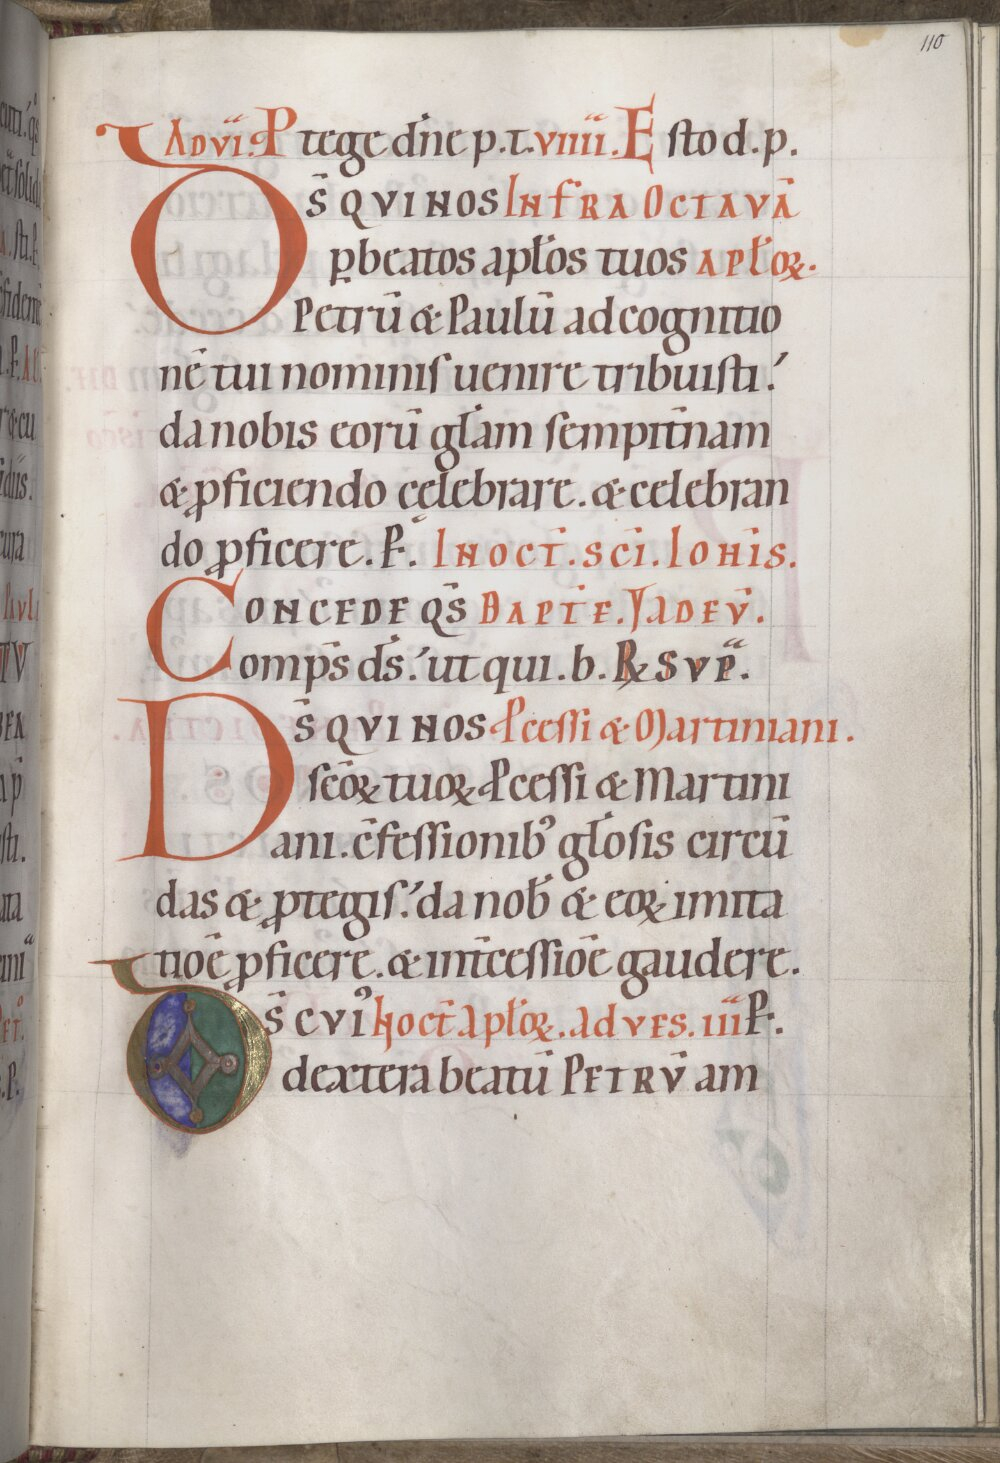 110
Ad vi. Ptege dn̄e p. t. viiii. Esto d. p.
Os̄ qui nos Infra octavā
p̱ beatos apłos tuos apłoꝝ.
Petrū & Paulū ad cognitio
nē tui nominis uenire tribuisti!
da nobis eorū głam sempit̄nam
& ꝓficiendo cęlebrare. & celebran
do ꝓficere. P. In oct̄. sc̄i. Iohīs.
Concede qs̄ Bapte. Ad eu̅.
Omp̄s ds̄! ut qui. b. R̶ sup̄.
Ds̄ qui nos Pcessi & Martiniani.
sc̄oꝝ tuoꝝ Pcessi & Martini
ani. c̄fessionib᾽ głosis circū
das & ꝓtegis! da nob̄ & eoꝝ imita
tiōe ꝓficere. & int̄cessiōe gaudere.
Ds̄ cui᾽ In oct̄ apłoꝝ. ad ves. iii P.
dextera beatū Petrū am